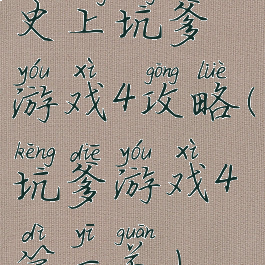 史上坑爹
yóu xì gōng lüè
游戏4攻略(
kēng diē yóu xì
坑爹游戏4
dì yī guān